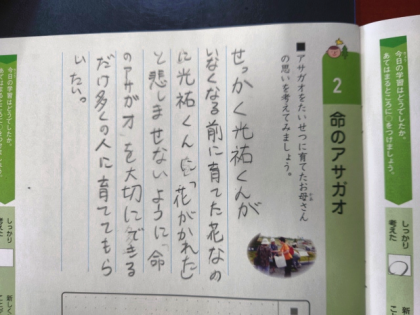 今日の学習はどうでしたか。
あてはまるところに○をつけましょう。
しっかり
考えた
2 命のアサガオ
■アサガオをたいせつに育てたお母さん
の思いを考えてみましょう。
せっかく光祐くんが
いなくなる前に育てた花なの
に光祐くんに「花がかれた」
と悲しませないように「命
のアサガオ」を大切にできる
だけ多くの人に育ててもら
いたい。
今日の学習はどうでしたか。
あてはまるところに○をつけましょう。
しっかり
考えた
新し